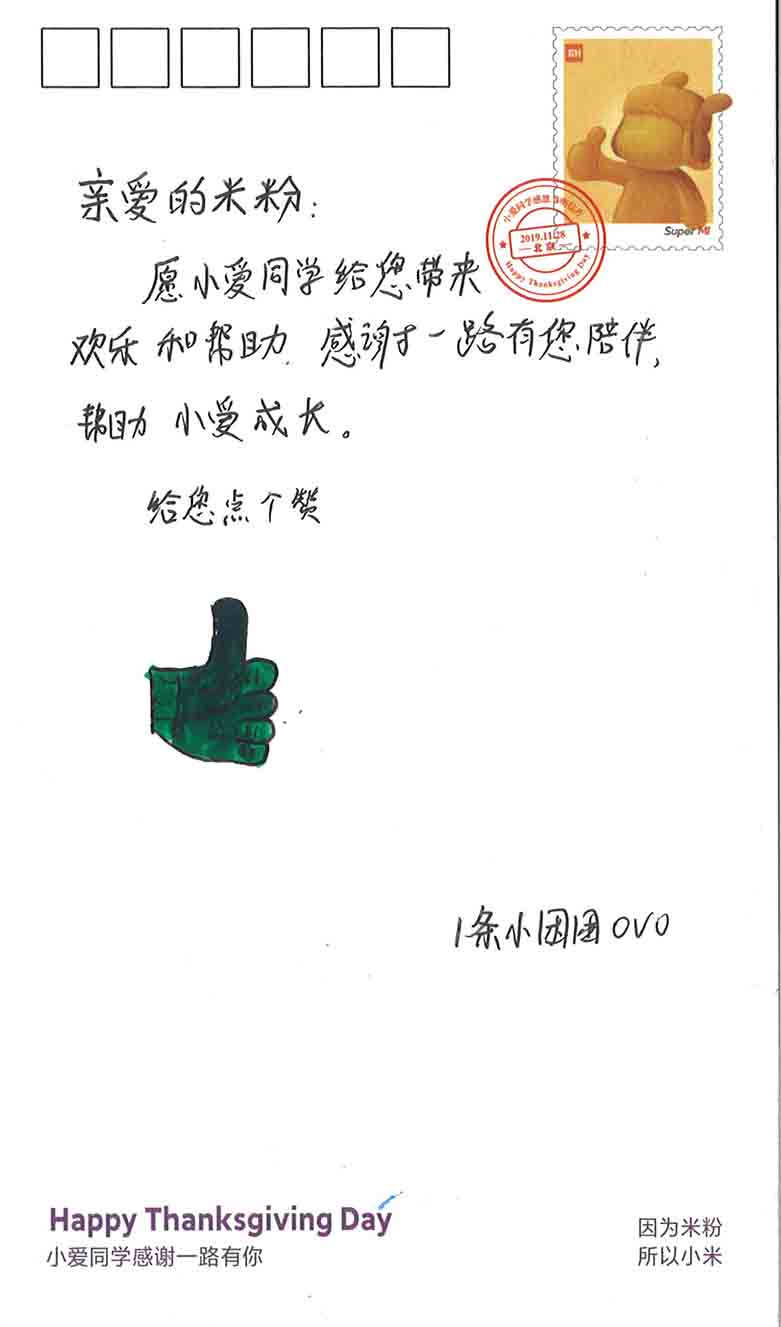 MI
Super MI
小爱同学感恩节明信片
2019.11.28
北京
Happy Thanksgiving Day
亲爱的米粉：
愿小爱同学给您带来
欢乐和帮助.感谢一路有您陪伴,
帮助小爱成长。
给您点个赞
1条小团团OVO
Happy Thanksgiving Day
小爱同学感谢一路有你
因为米粉
所以小米